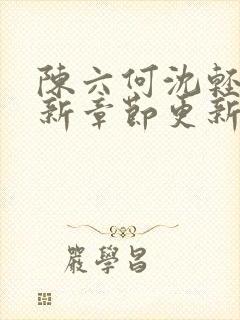 陳六何沈輕
新章節更新
嚴學昌